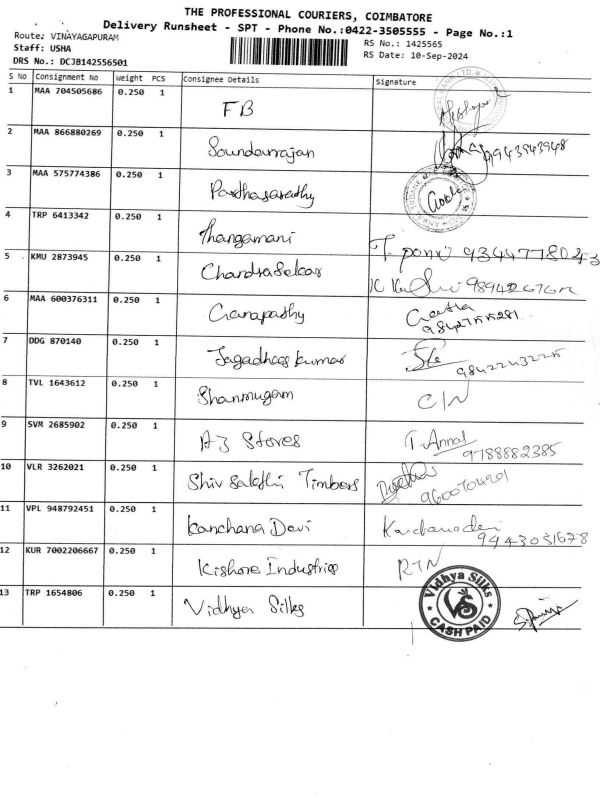 THE PROFESSIONAL COURIERS, COIMBATORE
Delivery Runsheet - SPT - Phone No.:0422-3505555 - Page No.:1
Route: VINAYAGAPURAM
Staff: USHA
DRS No.: DCJB142556501
RS No.: 1425565
RS Date: 10-Sep-2024
S No Consignment No Weight PCS Consignee Details Signature
1 MAA 704505686 0.250 1 FB
2 MAA 866880269 0.250 1 Soundarrajan 9943943948
3 MAA 575774386 0.250 1 Parthasarathy
4 TRP 6413342 0.250 1 Thangamani T. ponni 9344778043
5 KMU 2873945 0.250 1 Chandrasekar
6 MAA 600376311 0.250 1 Ganapathy
7 DDG 870140 0.250 1 Jagadheeskumar 9842243225
8 TVL 1643612 0.250 1 Shanmugam C/N
9 SVM 2685902 0.250 1 A3 Stores T. Annal 9788882385
10 VLR 3262021 0.250 1 Shiv Sakthi Timbers
11 VPL 948792451 0.250 1 Kanchana Devi Kanchanadevi 9443031678
12 KUR 7002206667 0.250 1 Kishore Industries RTN
13 TRP 1654806 0.250 1 Vidhya Silks
Vidhya Silks
VS
CASH PAID